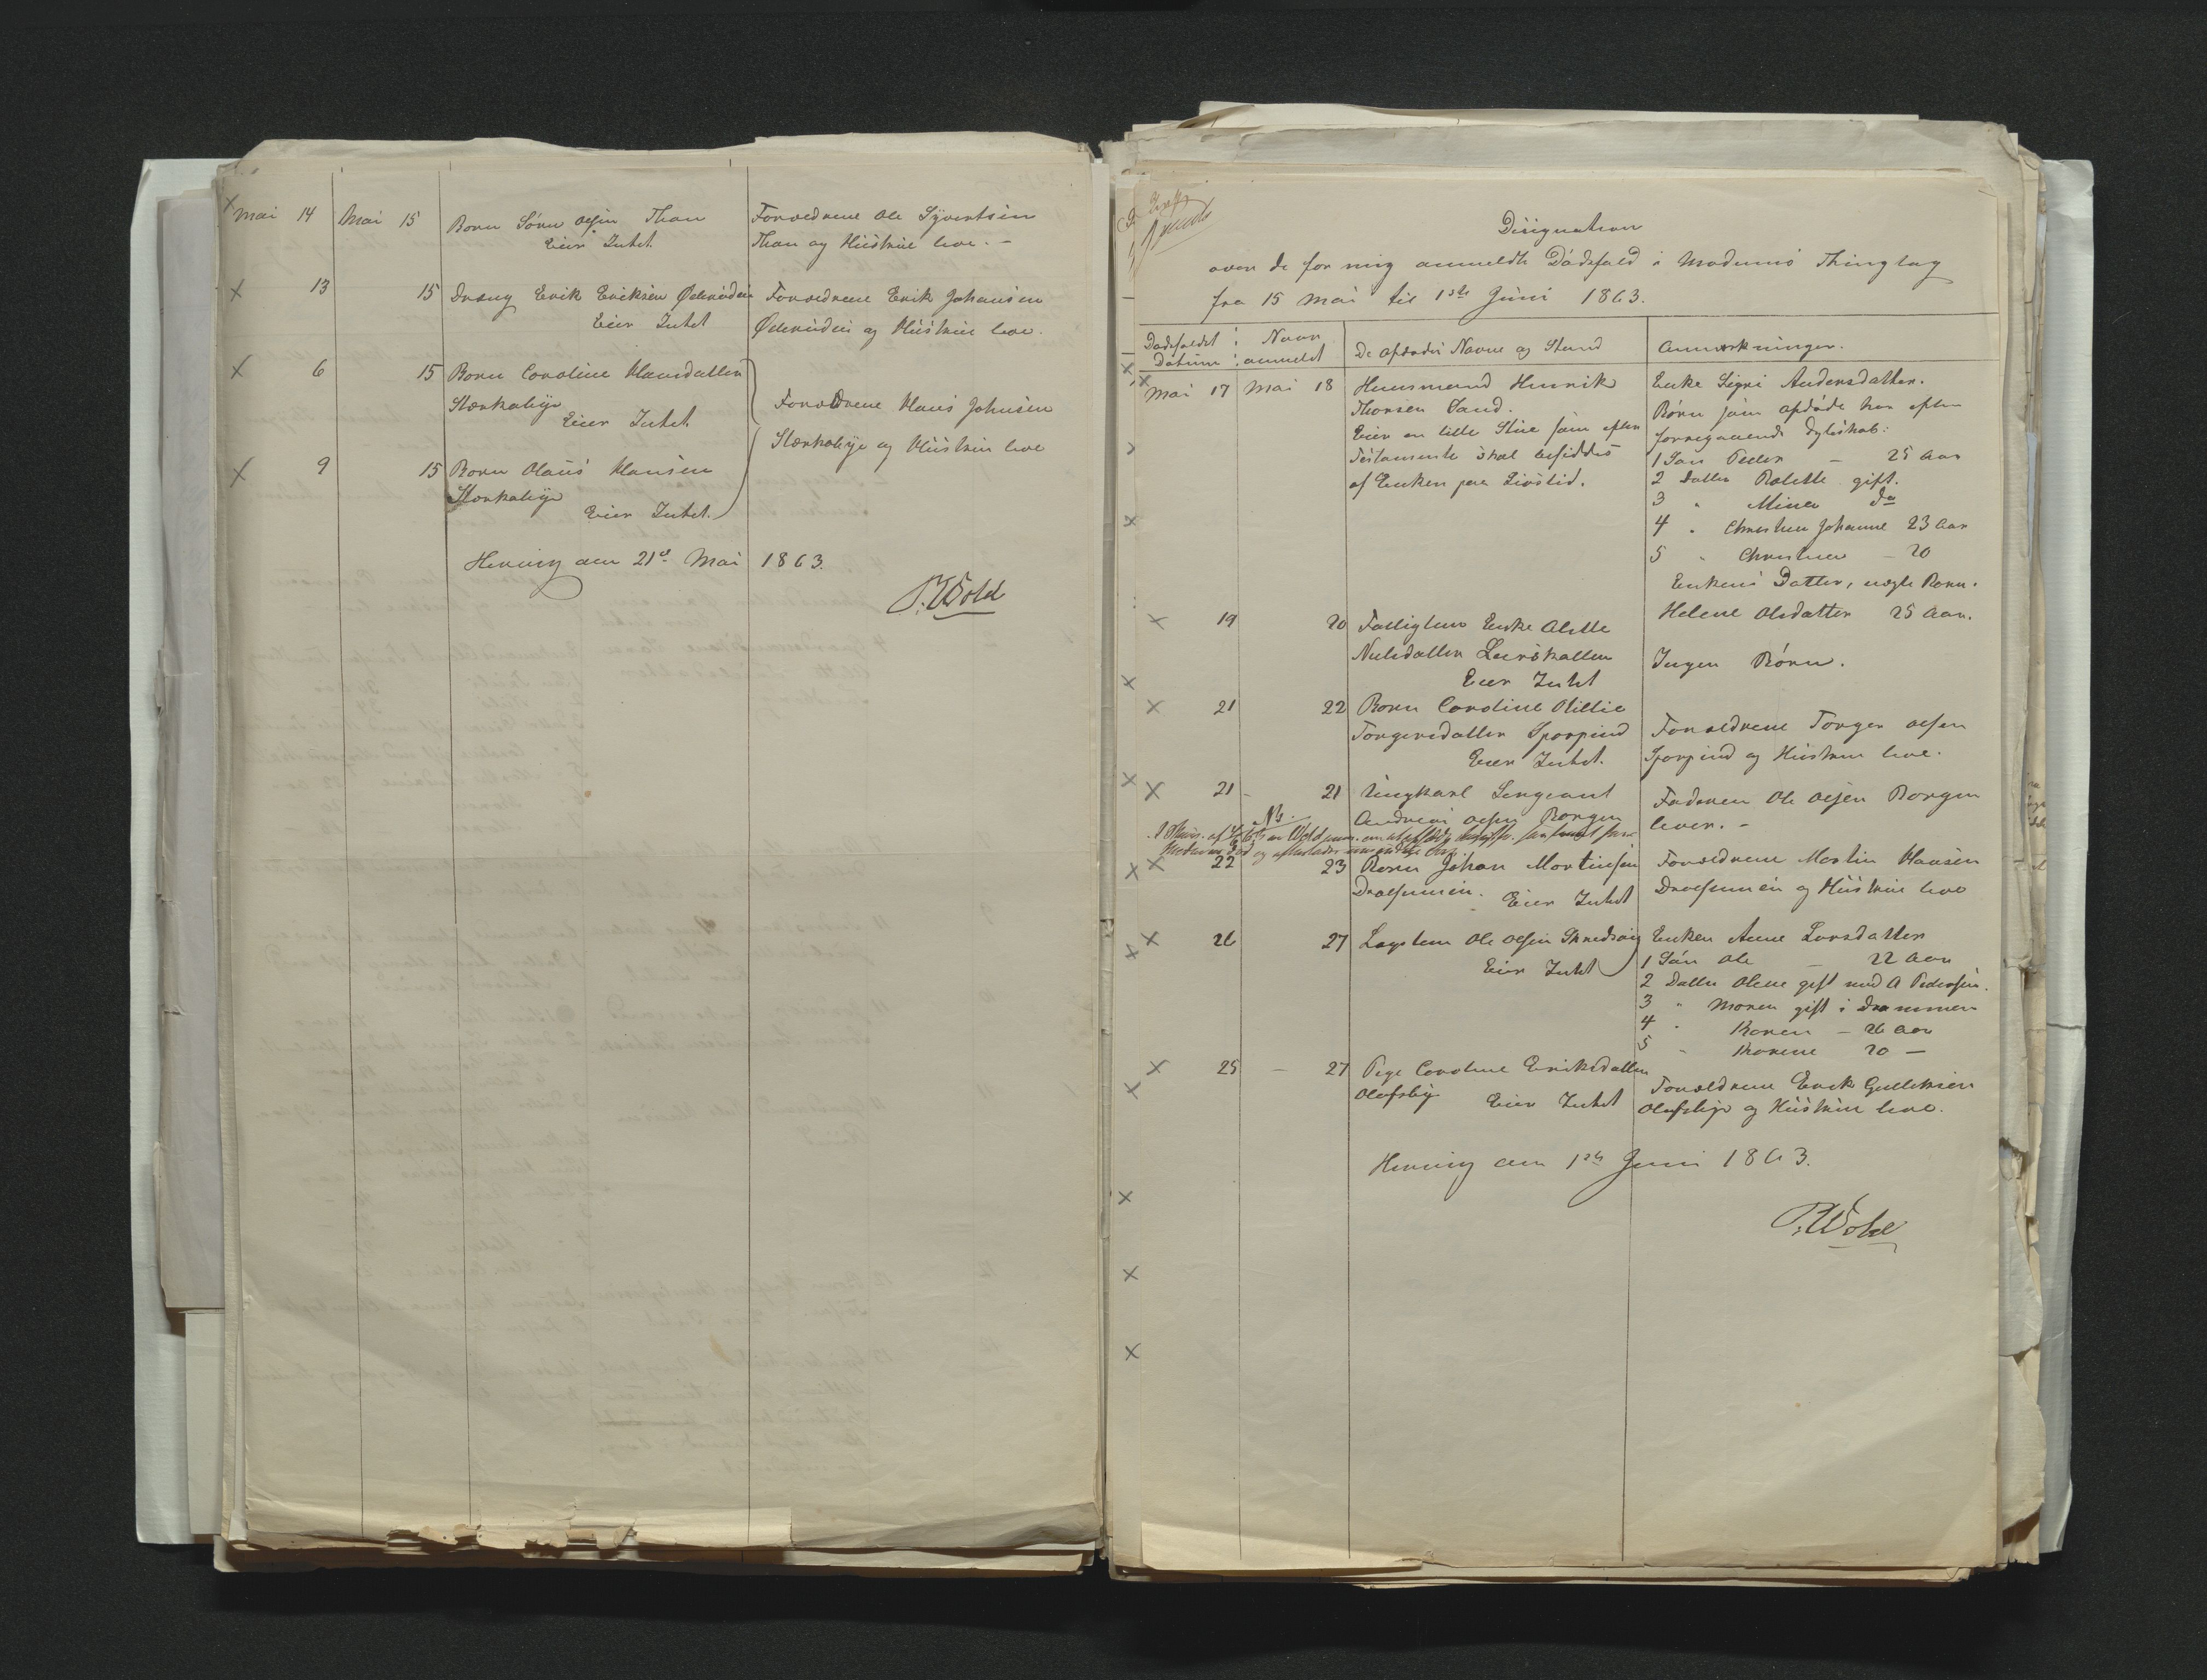 Mai 14 Mai 15 Barn Sørn Olsen Thon Forældrene Ole Syvertsen
Eier Intet Thon og Hustrue leve. –
13 15 Dreng Erik Eriksen Øderuden Forældrene Erik Johansen
Eier Intet Øderuden og Hustrue leve.
6 15 Barn Caroline Hansdatter
Stærkebye
Eier Intet
Forældrene Hans Johnsen
Stærkebye og Hustrue leve
9 15 Barn Olaus Hansen
Stærkebye
Eier Intet.
Herming den 21de Mai 1863.
P. Wold
Disignation
over de for mig anmeldte Dødsfald i Modums Thinglag
fra 15 Mai til 1ste Juni 1863.
Dødsfaldet Naar
Datum anmeldt De afdødes Navne og Stand Anmærkninger.
Mai 17 Mai 18 Huusmand Henrik Enke Sigri Andersdatter.
Thorsen Sand. Børn som afdøde har efter
Eier en lille Stue som efter forregaaende Egteskab:
Testamente skal besiddes 1 Søn Peder – 25 Aar
af Enken paa Livstid. 2 Datter Rolette gift.
3 " Mina do
4 " Christine Johanne 23 Aar
5 " Christine – 20
Enkens Datter, uægte Barn.
Helene Olsdatter 25 Aar.
19 20 Fattiglem Enke Olette
Nilsdatter Leerskallen Ingen Børn.
Eier Intet
21 22 Barn Caroline Ottilie
Torgersdatter Sporpind Forældrene Torger Olsen
Eier Intet. Sporpind og Hustrue leve.
21 – 21 Ungkarl Sergeant Faderen Ole Olsen Borgen
Andreas Olsen Borgen lever. –
NB.
22 23 Barn Johan Martinsen Forældrene Martin Hansen
Eier Intet og Hustrue leve
26 27 Lægdslem Ole Olsen Enken Anne Larsdatter
Eier Intet 1 Søn Ole – 22 Aar
2 Datter Olene gift med A Pedersen.
3 " Maren gift i Drammen
4 " Karen – 26 Aar
5 " Karene 20 –
25 – 27 Pige Caroline Eriksdatter
Olafsby Eier Intet Forældrene Erik Gulliksen
Olafsbye og Hustrue leve.
Herming den 1ste Juni 1863.
P. Wold